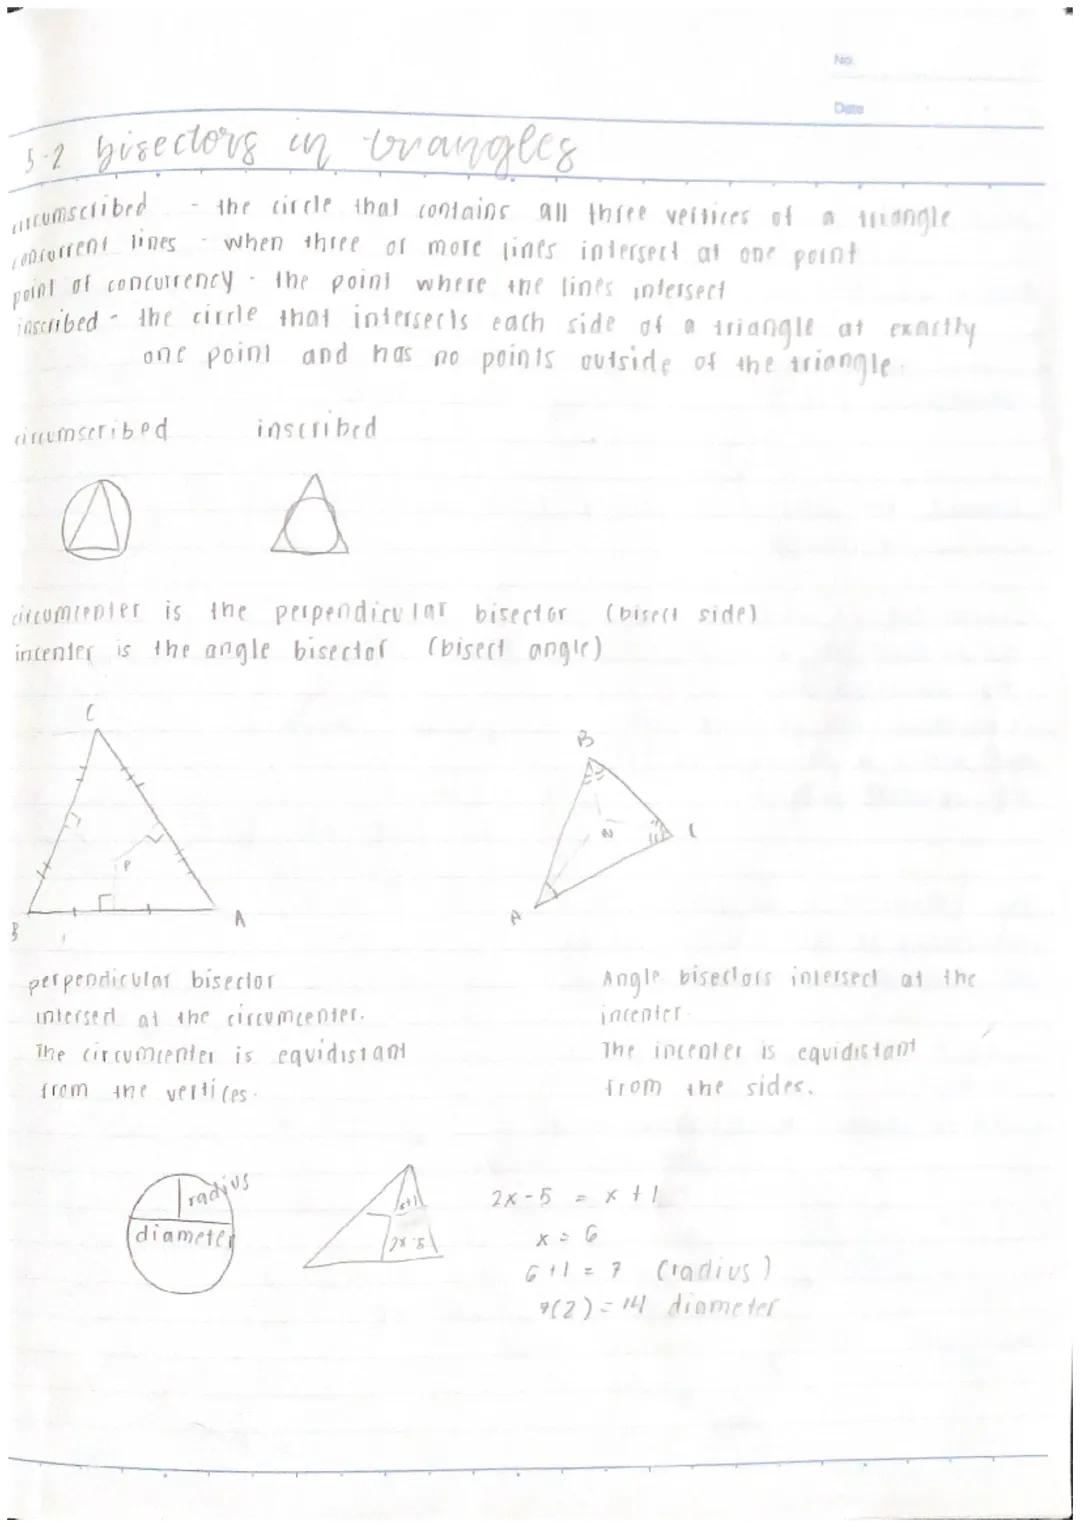 No.
Date
5-2 bisectors in triangles
circumscribed - the circle that contains all three vertices of a triangle
concurrent lines - when three or more lines intersect at one point
point of concurrency - the point where the lines intersect
inscribed - the circle that intersects each side of a triangle at exactly
one point and has no points outside of the triangle.
circumscribed inscribed
circumcenter is the perpendicular bisector (bisect side)
incenter is the angle bisector (bisect angle)
C
P
B A
B
N
C
A
perpendicular bisector
intersect at the circumcenter.
The circumcenter is equidistant
from the vertices.
Angle bisectors intersect at the
incenter.
The incenter is equidistant
from the sides.
radius
diameter
x+1
2x-5
2x-5 = x+1
x = 6
6+1 = 7 (radius)
7(2) = 14 diameter